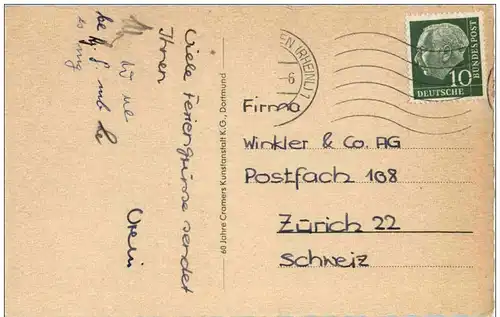 Viele Feriengrüsse sendet
Ihnen
60 Jahre Cramers Kunstanstalt K.G., Dortmund
EN (RHEINL) 1
6
10
DEUTSCHE
BUNDESPOST
Firma
Winkler & Co. AG
Postfach 168
Zürich 22
Schweiz